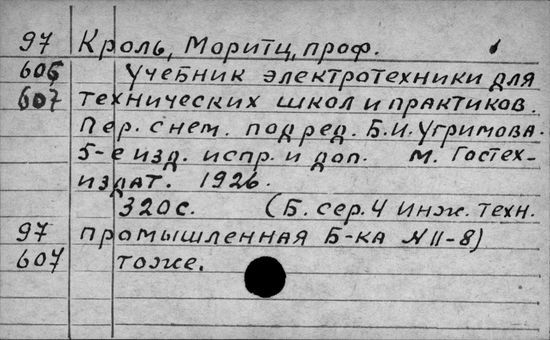 97 Кроль, Моритц, проф.
606 Учебник электротехники для
607 технических школ и практиков.
Пер. с нем. под ред. Б.И. Угримова.
5-е изд. испр. и доп. М. Гостех-
издат. 1926.
320с. (Б. сер. 4 Инж. техн.
97 промышленная Б-ка N II-8)
607 тоже.